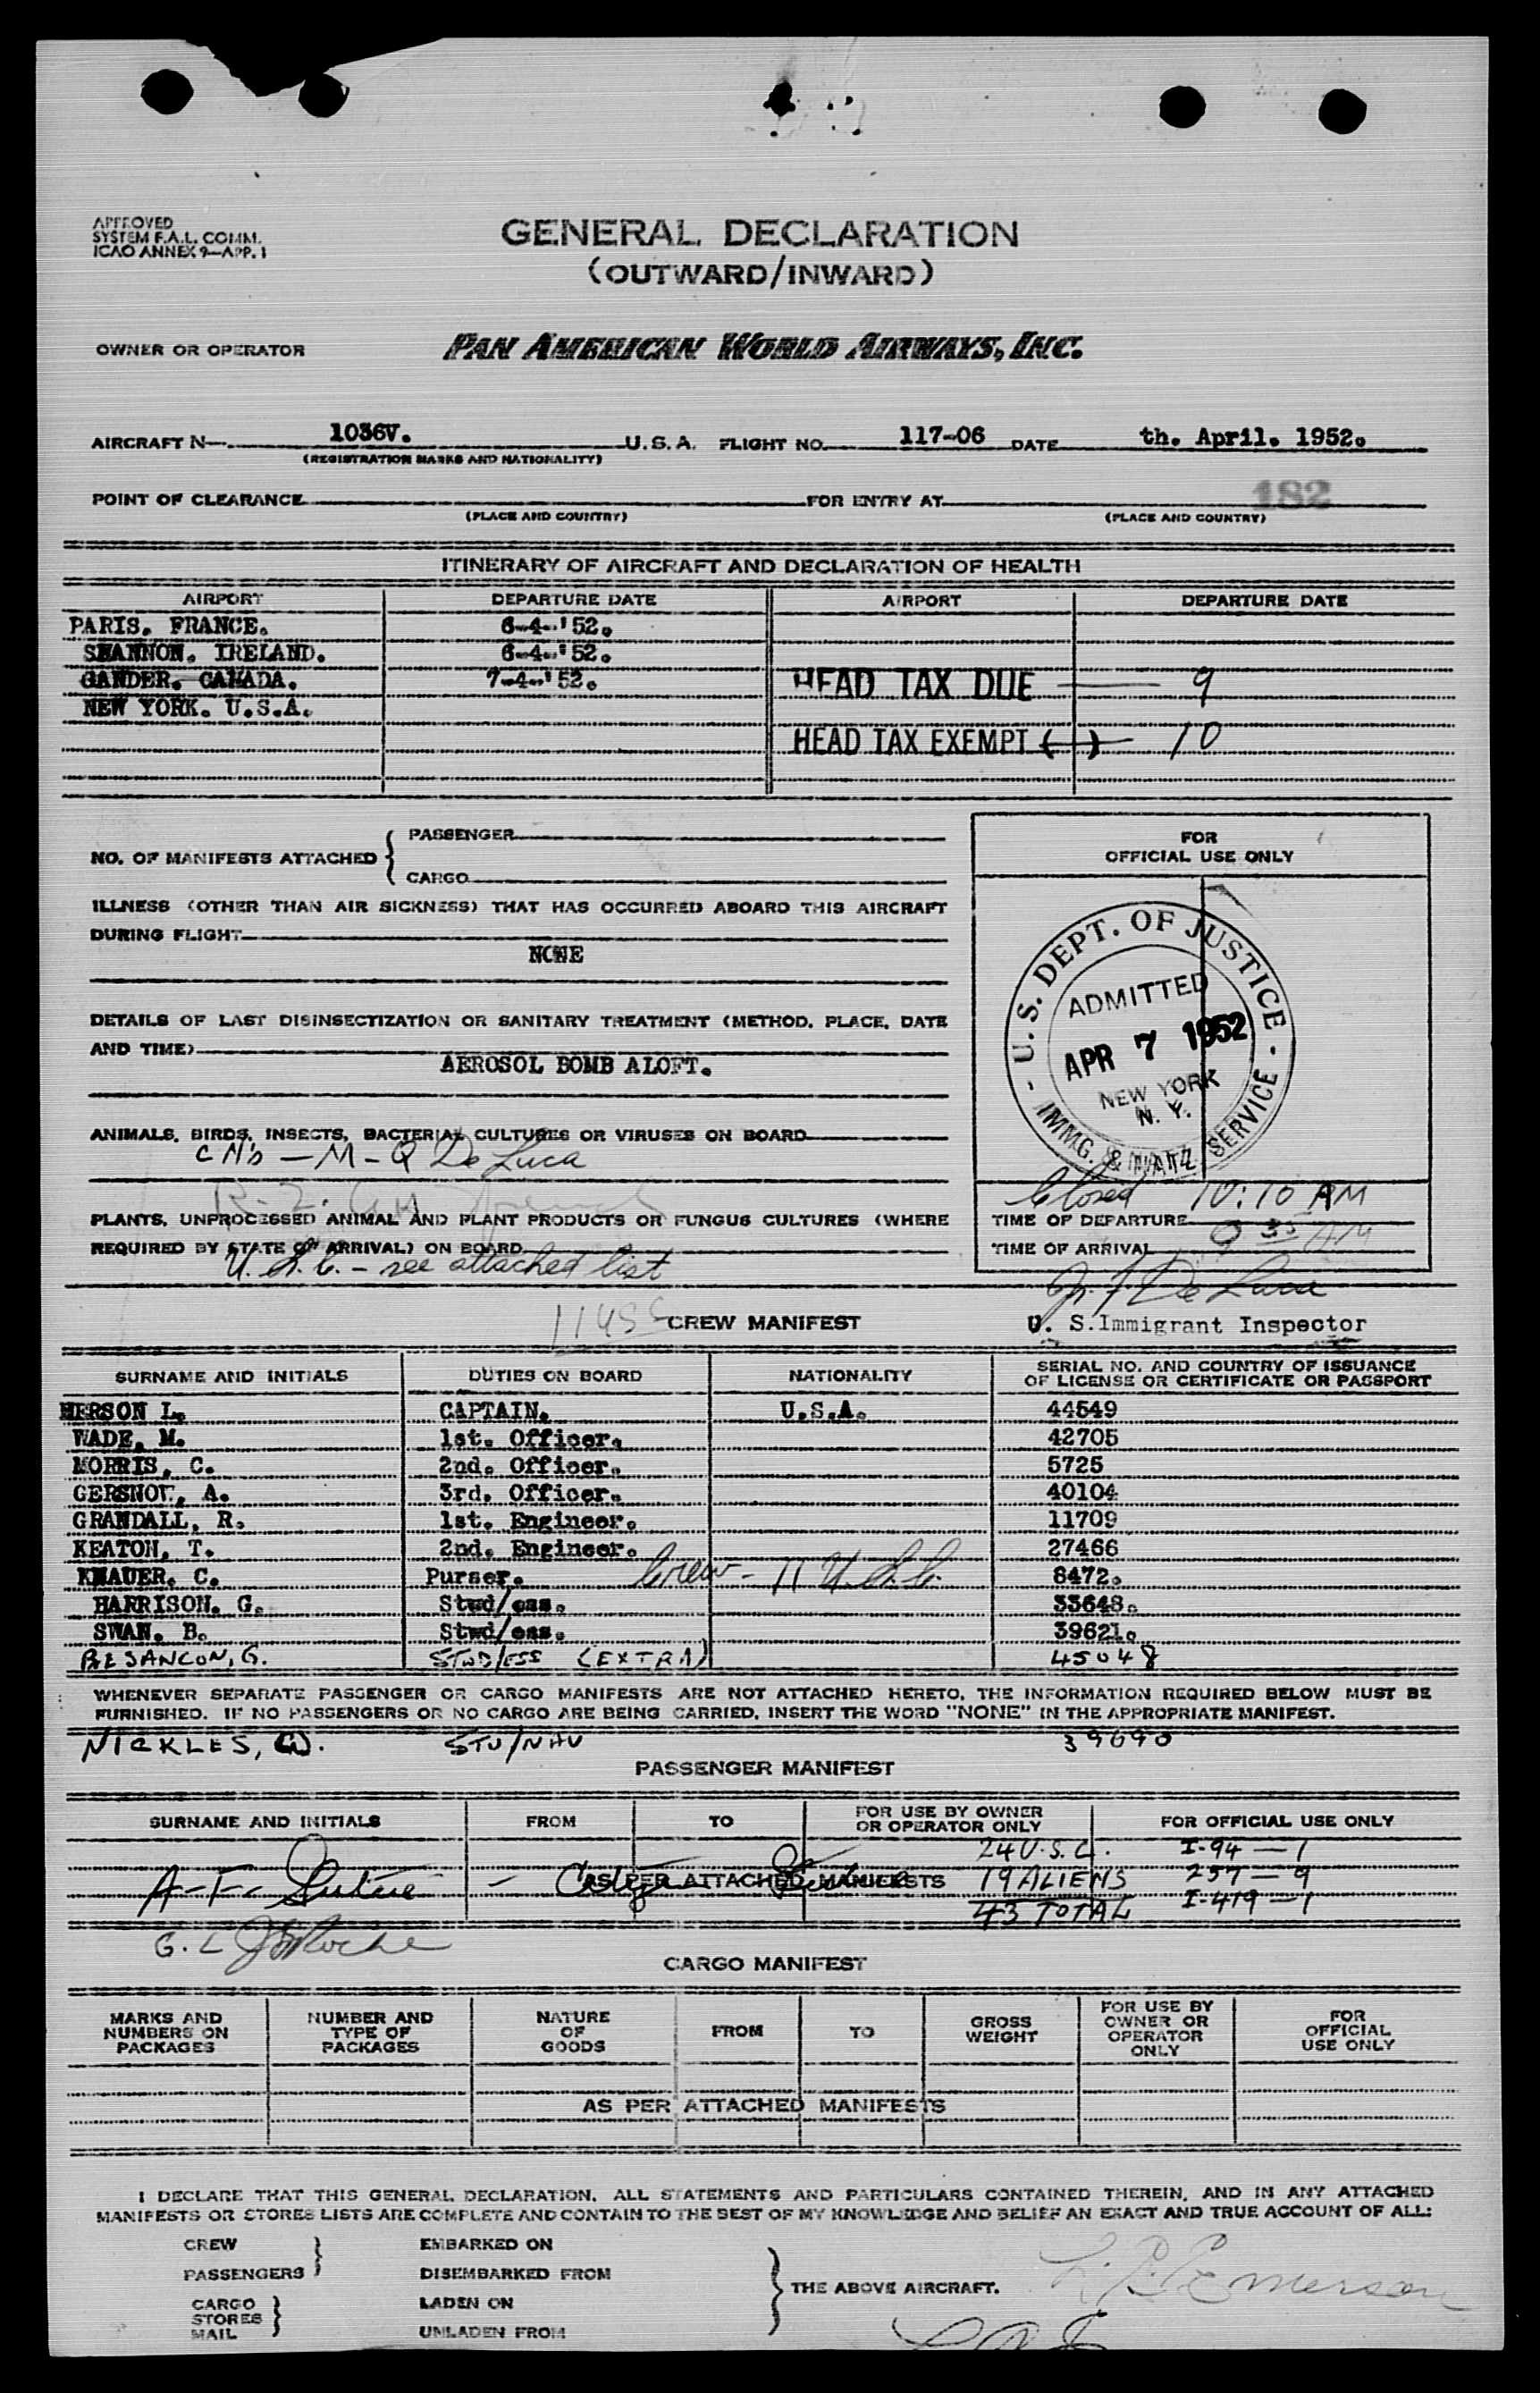 APPROVED
SYSTEM F.A.L. COMM.
ICAO ANNEX 9—APP. 1
GENERAL DECLARATION
(OUTWARD/INWARD)
OWNER OR OPERATOR PAN AMERICAN WORLD AIRWAYS, INC.
AIRCRAFT N— 1036V. U.S.A. FLIGHT NO. 117-06 DATE th. April. 1952.
(REGISTRATION MARKS AND NATIONALITY)
POINT OF CLEARANCE FOR ENTRY AT 182
(PLACE AND COUNTRY) (PLACE AND COUNTRY)
ITINERARY OF AIRCRAFT AND DECLARATION OF HEALTH
AIRPORT DEPARTURE DATE AIRPORT DEPARTURE DATE
PARIS. FRANCE. 6-4-'52.
SHANNON. IRELAND. 6-4-'52.
GANDER. CANADA. 7-4-'52. HEAD TAX DUE — 9
NEW YORK. U.S.A.
HEAD TAX EXEMPT ( ) — 10
NO. OF MANIFESTS ATTACHED { PASSENGER
CARGO
FOR
OFFICIAL USE ONLY
ILLNESS (OTHER THAN AIR SICKNESS) THAT HAS OCCURRED ABOARD THIS AIRCRAFT
DURING FLIGHT
NONE
U.S. DEPT. OF JUSTICE
ADMITTED
APR 7 1952
NEW YORK
N. Y.
IMMG. & NATZ. SERVICE
DETAILS OF LAST DISINSECTIZATION OR SANITARY TREATMENT (METHOD, PLACE, DATE
AND TIME)
AEROSOL BOMB ALOFT.
ANIMALS, BIRDS, INSECTS, BACTERIAL CULTURES OR VIRUSES ON BOARD
— M - Q De Luca
Closed 10:10 AM
PLANTS, UNPROCESSED ANIMAL AND PLANT PRODUCTS OR FUNGUS CULTURES (WHERE
TIME OF DEPARTURE
REQUIRED BY STATE OF ARRIVAL) ON BOARD
TIME OF ARRIVAL 9 35 AM
U.S.C. - see attached list
De Luca
U. S. Immigrant Inspector
CREW MANIFEST
SURNAME AND INITIALS DUTIES ON BOARD NATIONALITY SERIAL NO. AND COUNTRY OF ISSUANCE
OF LICENSE OR CERTIFICATE OR PASSPORT
MERSON L. CAPTAIN. U.S.A. 44549
WADE, M. 1st. Officer. 42705
MORRIS, C. 2nd. Officer. 5725
GERSNOT, A. 3rd. Officer. 40104
GRANDALL, R. 1st. Engineer. 11709
KEATON, T. 2nd. Engineer. 27466
KNAUER, C. Purser. Crew - 11 U.S.C. 8472.
HARRISON. G. Stwd/ess. 33648.
SWAN. B. Stwd/ess. 39621.
BESANCON, G. STWD/ESS (EXTRA) 45048
WHENEVER SEPARATE PASSENGER OR CARGO MANIFESTS ARE NOT ATTACHED HERETO, THE INFORMATION REQUIRED BELOW MUST BE
FURNISHED. IF NO PASSENGERS OR NO CARGO ARE BEING CARRIED, INSERT THE WORD "NONE" IN THE APPROPRIATE MANIFEST.
NICKLES, W. STU/NAV 39690
PASSENGER MANIFEST
SURNAME AND INITIALS FROM TO FOR USE BY OWNER
OR OPERATOR ONLY
FOR OFFICIAL USE ONLY
24 U.S.C. I-94 — 1
AS PER ATTACHED MANIFESTS 19 ALIENS 257 — 9
43 TOTAL I-419 — 1
CARGO MANIFEST
MARKS AND
NUMBERS ON
PACKAGES
NUMBER AND
TYPE OF
PACKAGES
NATURE
OF
GOODS
FROM
TO
GROSS
WEIGHT
FOR USE BY
OWNER OR
OPERATOR
ONLY
FOR
OFFICIAL
USE ONLY
AS PER ATTACHED MANIFESTS
I DECLARE THAT THIS GENERAL DECLARATION, ALL STATEMENTS AND PARTICULARS CONTAINED THEREIN, AND IN ANY ATTACHED
MANIFESTS OR STORES LISTS ARE COMPLETE AND CONTAIN TO THE BEST OF MY KNOWLEDGE AND BELIEF AN EXACT AND TRUE ACCOUNT OF ALL:
CREW EMBARKED ON
PASSENGERS DISEMBARKED FROM
THE ABOVE AIRCRAFT. Emerson
CARGO LADEN ON
STORES
MAIL UNLADEN FROM